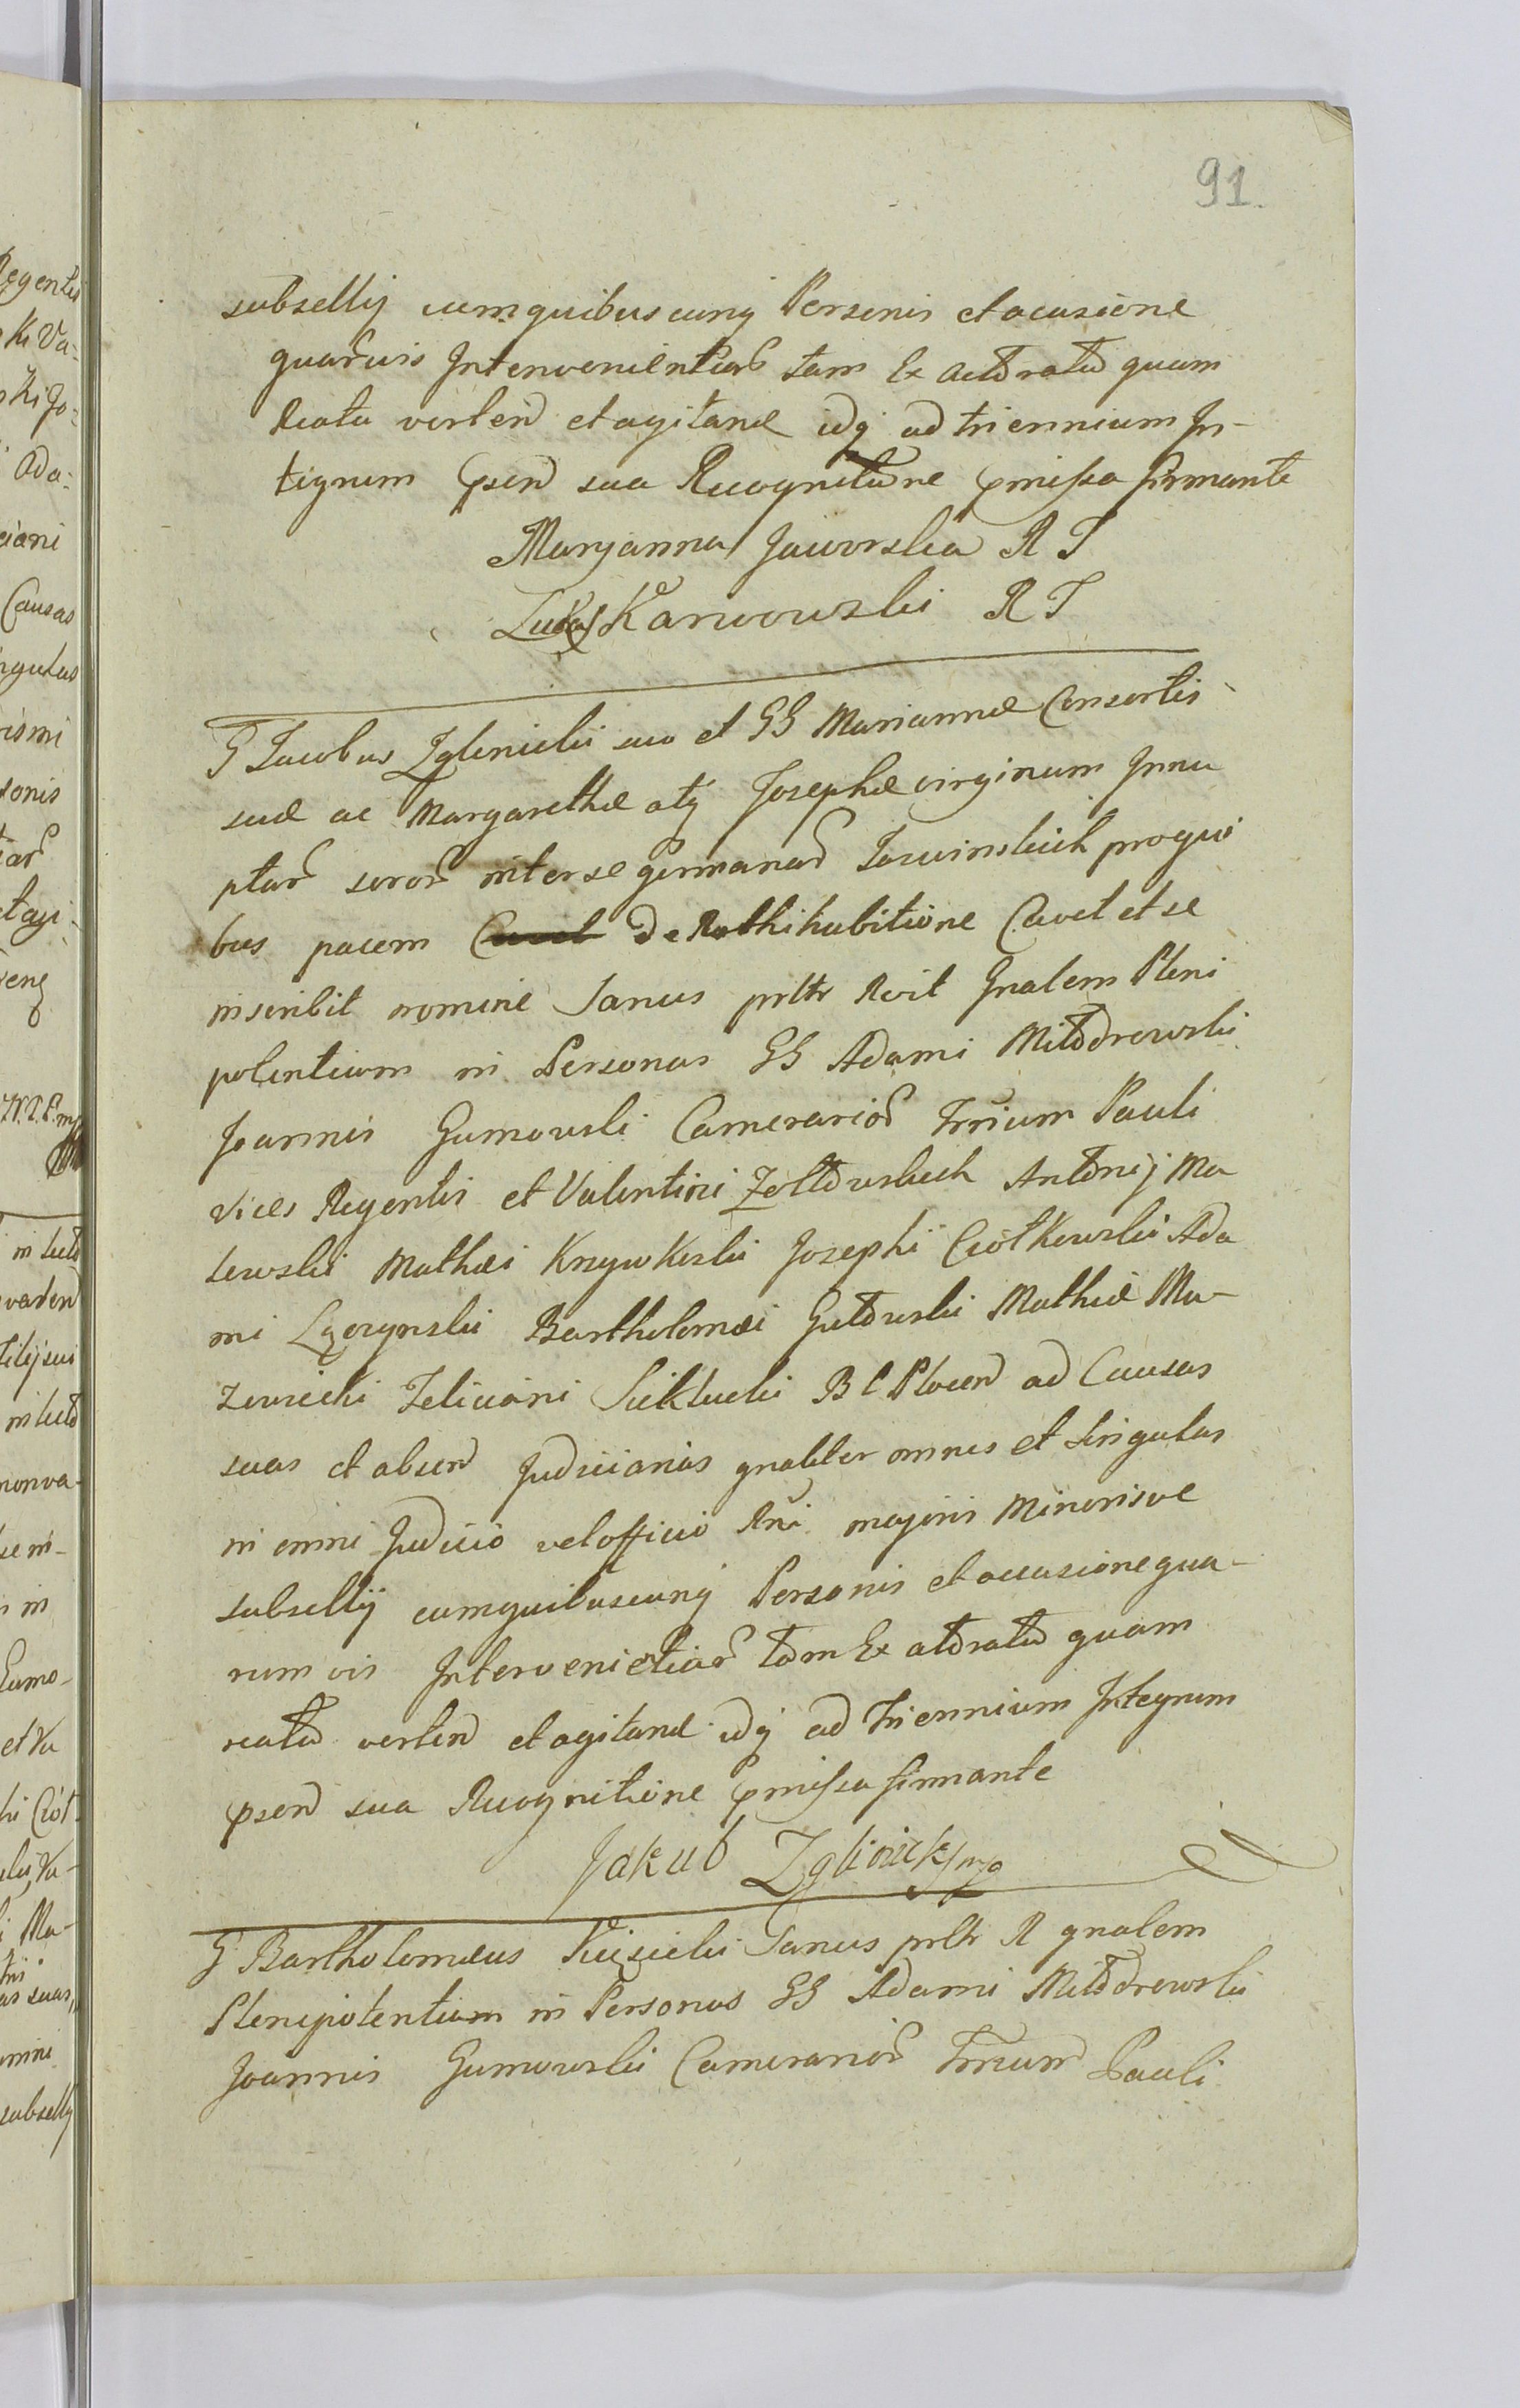 91.
subsellij cumquibuscunq Personis et ocasione
quarũvis Intervenientiar tam Ex actoratu quam
Reatu verten et agitand idq ad triennium In-
tegrum psen sua Recognitione pmissa firmante
Maryanna Jaworska R T
Łukasz Karwowski R T
G Jacobus Zglenicki suo et GG Mariannæ Consortis
suæ ac Margarethæ atq Josephæ virginum Innu
ptar soror inter se germanar pro qui
bus pacem Cavet De Rathihabitione Cavet et se
inscribit nomine Sanus prltr Rcit Gnalem Pleni
potentiam in Personas GG Adami Miłodrowski
Joannis Gumowski Camerarior Trrium Pauli
Vices Regentis et Valentini Zołtowskich Antonij Ma
lewski Mathæi Krzywkoski Josephi Ciołkowski Ada
mi Łączynski Bartholomæi Gutowski Mathiæ Ma-
zowiecki Feliciani Sikłucki B C Plocen ad Causas
suas et absen Judiciarias gnaliter omnes et singulas
in omni Judicio vel officio Rni majoris Minorisve
subsellij cumquibuscunq Personis et occasione qua-
rum vis Intervenietiar tam Ex actoratu quam
reatu verten et agitand idq ad Triennium Integrum
psen sua Recognitione pmissa firmante
Jakub Zglinicki mp
G Bartholomæus Kisicki Sanus prltr R gnalem
Plenipotentiam in Personas GG Adami Miłodrowski
Joannis Gumowski Camerarior Trrium Pauli
Regentis
Ada-
Causas
ngulas
sonis
et agi-
in
et Va
Ciół-
Ma-
as suas
subselly